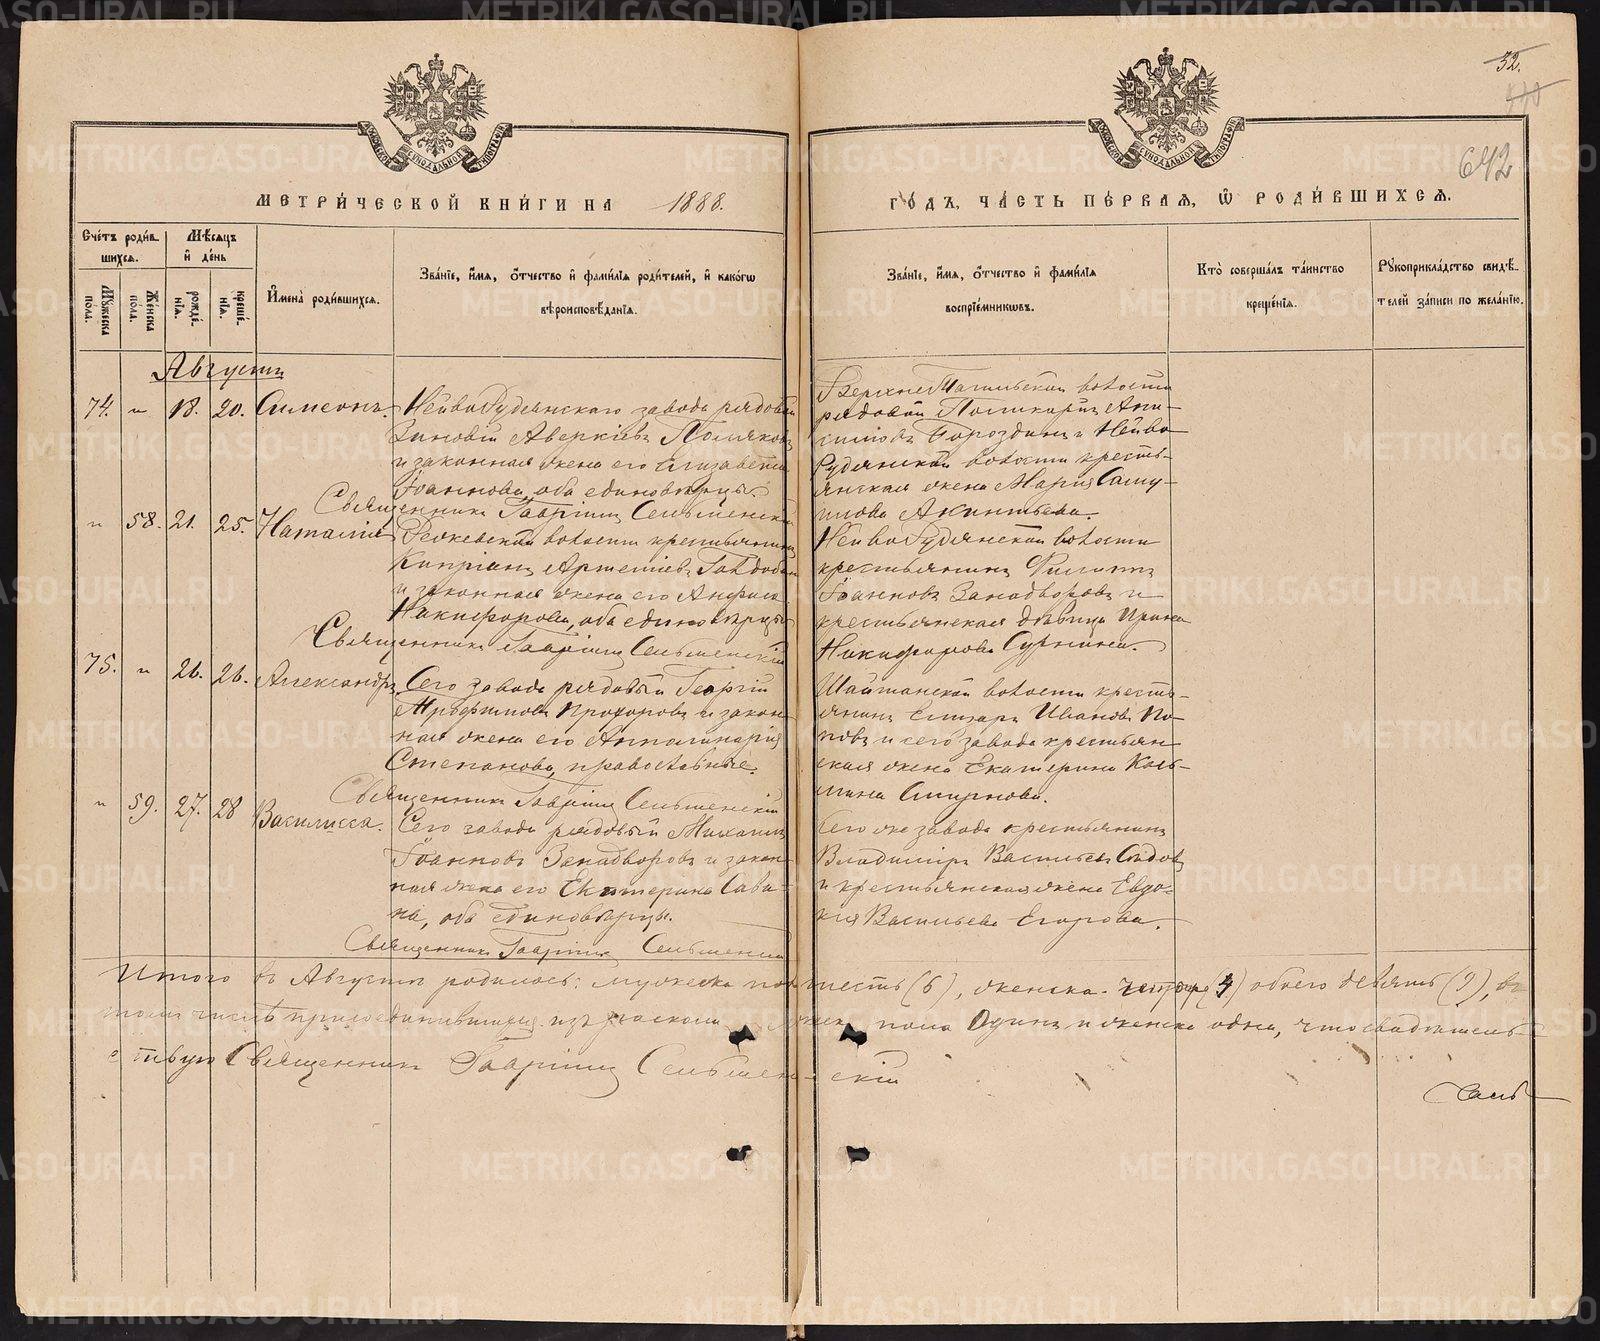 32.
642
МЕТРИ́ЧЕСКОЙ КНИ́ГИ НА 1888.
ГО́ДЪ, ЧА́СТЬ ПЕ́РВАЯ, Ѡ РОДИ́ВШИХСЯ.
Сче́тъ роди́вшихся.
Мѣ́сяцъ и҆ де́нь
Мꙋ́жеска по́ла.
Же́нска по́ла.
рожде́нїя.
креще́нїя.
И҆мена̀ роди́вшихся.
Зва́нїе, и҆́мя, о҆́тчество и҆ фами́лїя роди́телей, и҆ како́гѡ
вѣроисповѣ́данїя.
Зва́нїе, и҆́мя, о҆́тчество и҆ фами́лїя
воспрїе́мникѡвъ.
Кто̀ соверша́лъ та́инство
креще́нїя.
Рꙋкоприкла́дство свидѣ́-
телей за́писи по жела́нїю.
Августъ
74. " 18. 20. Симеонъ.
НейвоРудянскаго завода рядовой
Зиновій Аверкіевъ Поляковъ
и законная жена его Елизавета
Іоаннова, оба единовѣрцы.
Священникъ Гавріилъ Сельменскій
ВерхнеТагильской волости
рядовой Поликарпъ Ани-
симовъ Бороздинъ и Нейво
Рудянской волости кресть-
янская жена Марія Саму-
илова Акинтьева.
" 58. 21. 25. Наталія
Режевской волости крестьянинъ
Кипріанъ Артеміевъ
и законная жена его Анфиса
Никифорова, оба единовѣрцы
Священникъ Гавріилъ Сельменскій
НейвоРудянской волости
крестьянинъ Филиппъ
Іоанновъ Занадворовъ и
крестьянская дѣвица Ирина
Никифорова Сурнина.
75. " 26. 26. Александръ
Сего завода рядовый Георгій
Трофимовъ Прохоровъ и закон-
ная жена его Апполинарія
Степанова, православные.
Священникъ Гавріилъ Сельменскій
Шайтанской волости кресть-
янинъ Елизаръ Ивановъ По-
повъ и сего завода крестьян
ская жена Екатерина Козь-
мина Смирнова.
" 59. 27. 28 Василисса.
Сего завода рядовый Михаилъ
Іоанновъ Занадворовъ и закон-
ная жена его Екатерина Сави-
на, оба единовѣрцы.
Священникъ Гавріилъ Сельменскій
Сего же завода крестьянинъ
Владиміръ Васильевъ Сѣдовъ
и крестьянская жена Евдо-
кія Васильева Егорова.
Итого въ Августѣ родилось: мужеска пола шесть (6), женска четыре (4) обоего девять (9), въ
томъ числѣ присоединившихся изъ раскола мужеска пола одинъ и женска одна, что свидѣтель-
ствую Священникъ Гавріилъ Сельменскій
METRIKI.GASO-URAL.RU